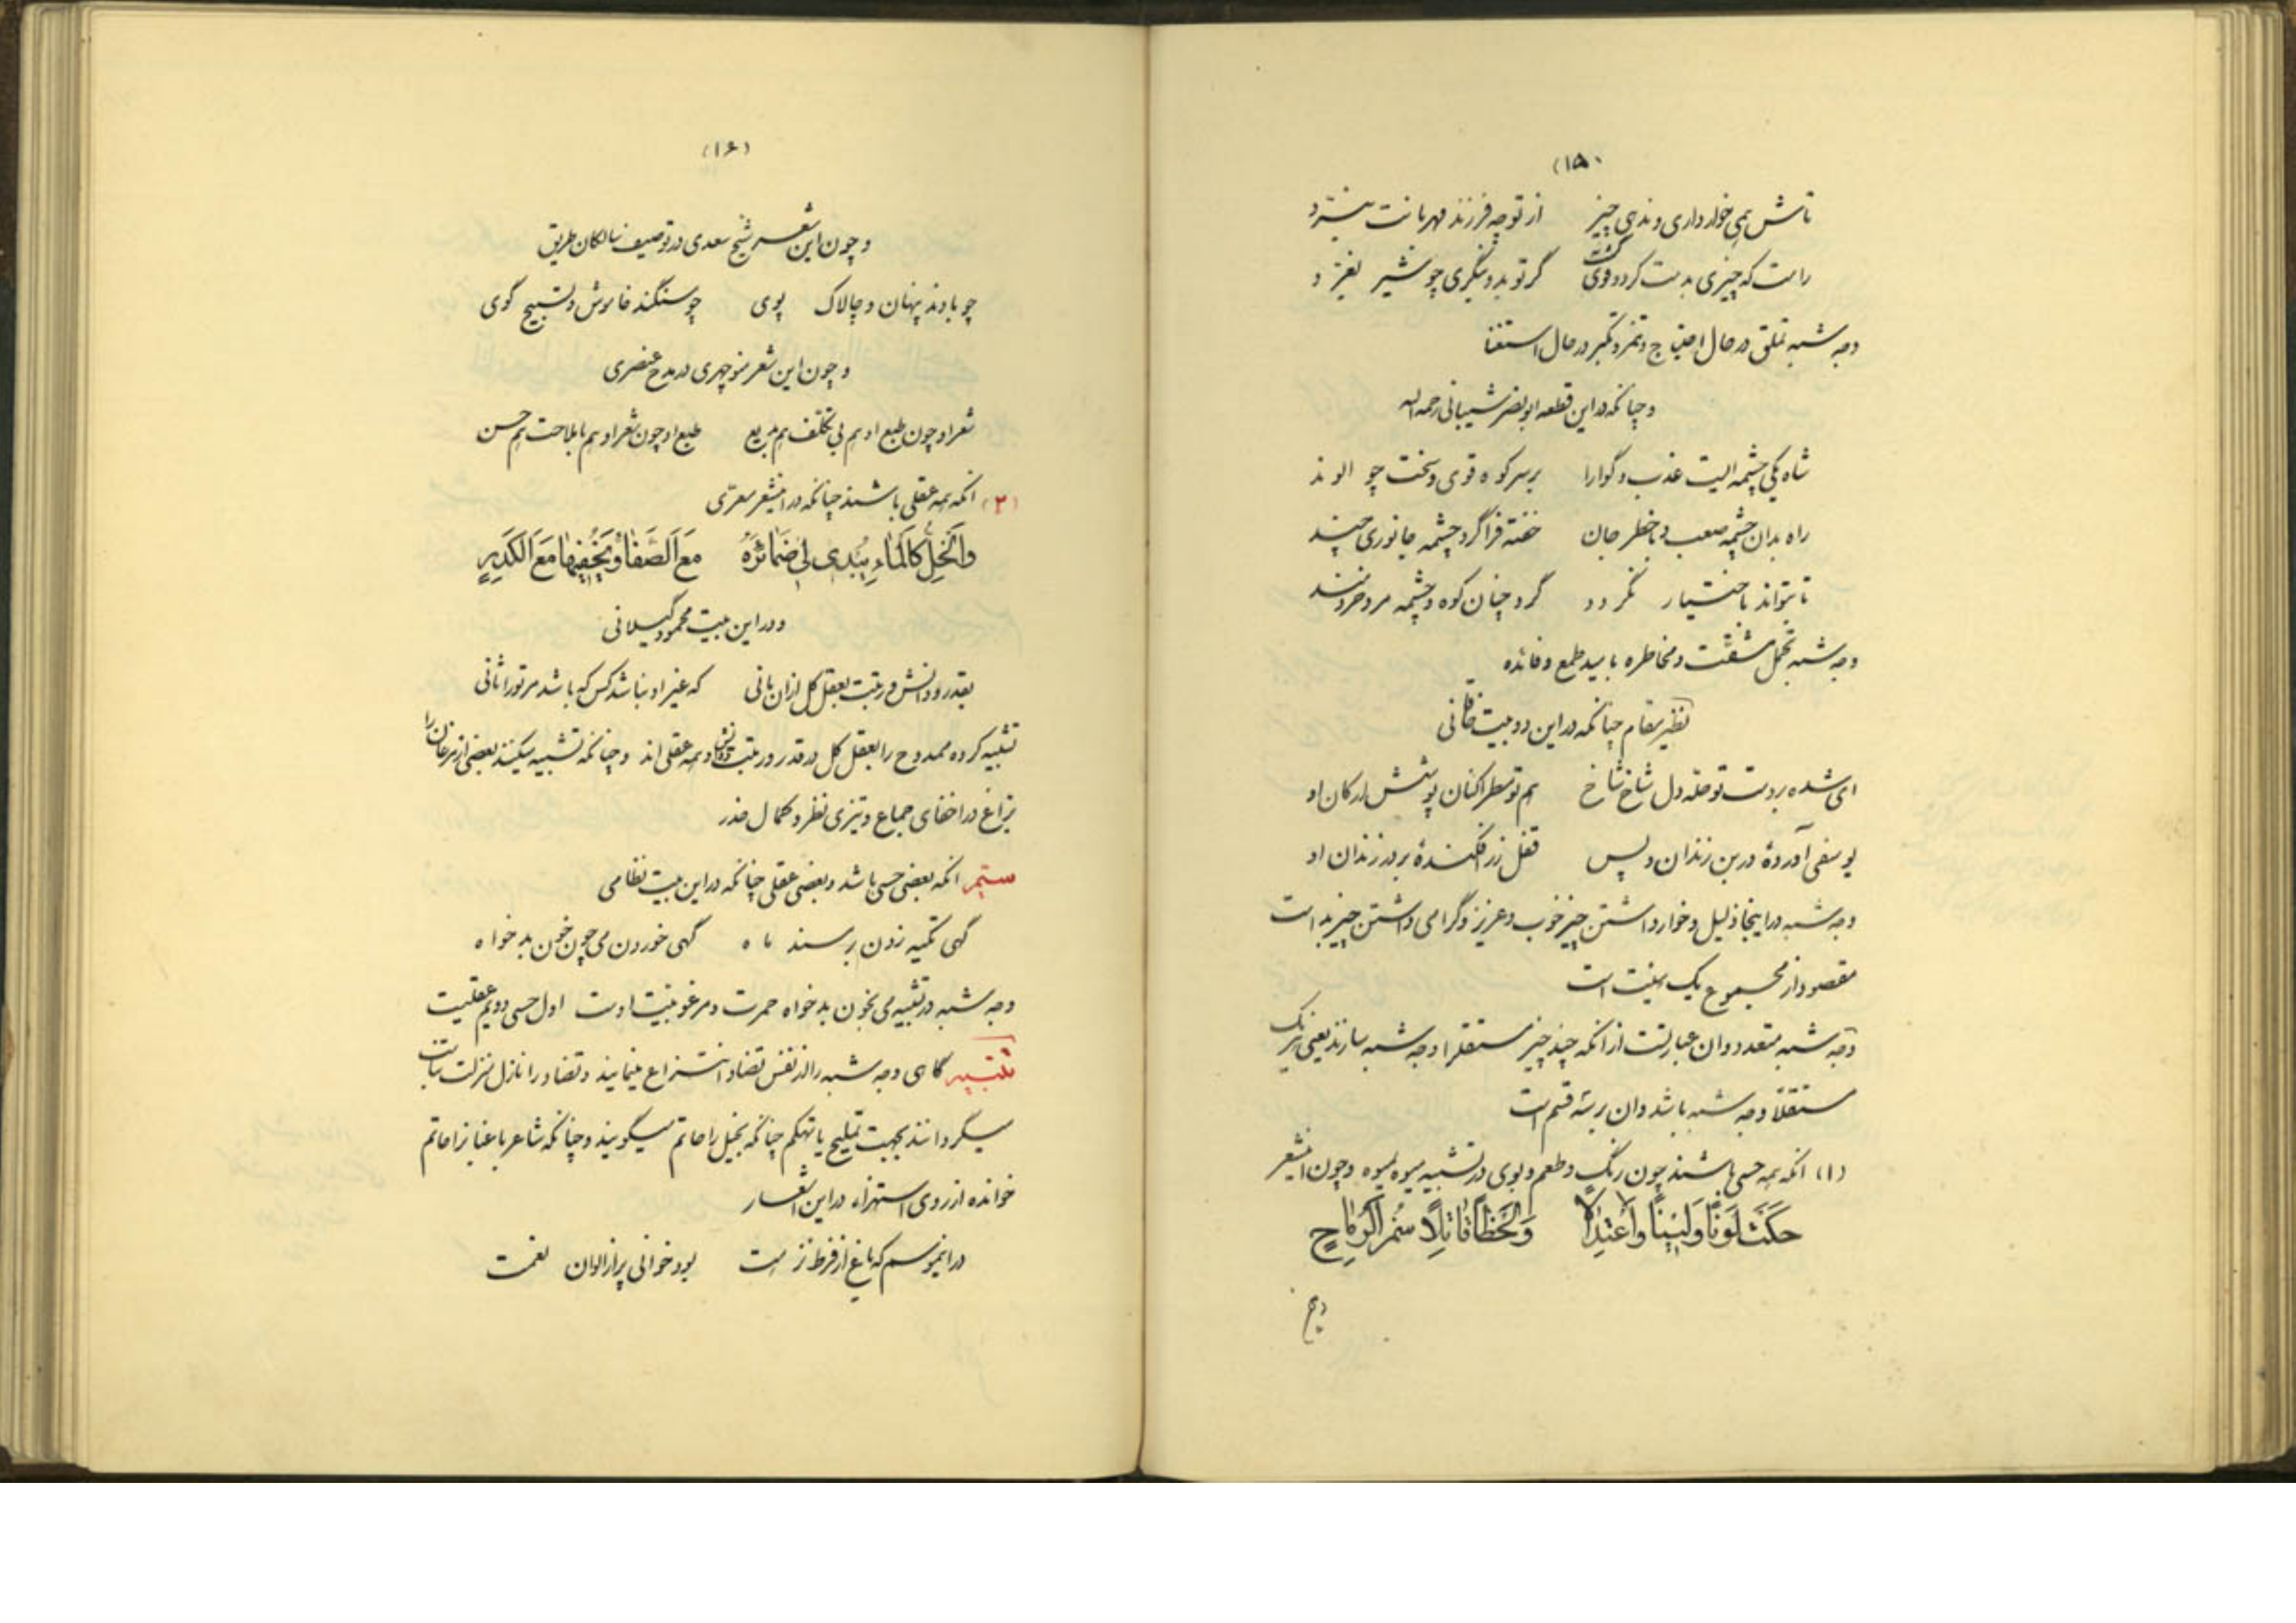 (۱۵)
تاش همی خوار داری و ندهی چیز از تو چو فرزند مهربانت نبرد
راست که چیزی بدست کرد و قوی گشت گر تو بدو بنگری چو شیر بغرد
وجه شبه تملق در حال احتیاج و تنمر و تکبر در حال استغنا
و چنانکه در این قطعه ابونصر شیبانی رحمه الله
شاه یکی چشمه ایست عذب و گوارا بر سر کوه قوی و سخت چو الوند
راه بدان چشمه صعب و با خطر جان خفته فرا گرد چشمه جانوری چند
تا بتواند باختیار نگردد گرد چنان کوه و چشمه مرد خردمند
وجه شبه تحمل مشقت و مخاطره بامید طمع و فائده
نظیر مقام چنانکه در این دو بیت خاقانی
ای شده بر دست تو حله دل شاخ شاخ هم تو مطرا کنان پوشش ارکان او
یوسفی آوردهٔ در بن زندان و پس قفل زر افکندهٔ بر در زندان او
وجه شبه در اینجا ذلیل و خوار داشتن چیز خوب و عزیز و گرامی داشتن چیز بد است
مقصود از مجموع یک هیئت است
وجه شبه متعدد و ان عبارتست از انکه چند چیز مستقلا وجه شبه سازند یعنی هر یک
مستقلاً وجه شبه باشد و ان بر سه قسم است
(۱) انکه همه حسی باشند چون رنگ و طعم و بوی در تشبیه میوه بمیوه و چون اینشعر
حَكَتْ لَوْنًا وَلَيْنًا وَاعْتِدَالًا وَلَحْظًا قَاتِلًا سُمْرَ الرِّمَاحِ
(۱۶)
و چون این شعر شیخ سعدی در توصیف سالکان طریق
چو بادند پنهان و چالاک پوی چو سنگند خاموش و تسبیح گوی
و چون این شعر منوچهری در مدح عنصری
شعر او چون طبع او هم بی تکلف هم بدیع طبع او چون شعر او هم با ملاحت هم حسن
(۲) انکه همه عقلی باشند چنانکه در اینشعر معرّی
وَالْخِلُّ كَالْمَاءِ يُبْدِي لِي ضَمَائِرَهُ مَعَ الصَّفَاءِ وَيُخْفِيهَا مَعَ الْكَدَرِ
و در این بیت محمود گیلانی
بقدر و دانش و رتبت بعقل کل ازان مانی که غیر او نباشد کس که باشد مر تو را ثانی
تشبیه کرده ممدوح را بعقل کل در قدر و رتبت و دانش و همه عقلی اند و چنانکه تشبیه میکنند بعضی از مرغان را
بزاغ در اخفای جماع و تیزی نظر و کمال حذر
سیّم انکه بعضی حسی باشد و بعضی عقلی چنانکه در این بیت نظامی
گهی تکیه زدن بر مسند ماه گهی خوردن می چون خون بدخواه
وجه شبه در تشبیه می بخون بدخواه حمرت و مرغوبیت اوست اول حسی دویم عقلیست
تنبیه گاهی وجه شبه را از نفس تضاد انتزاع مینمایند و تضاد را نازل منزلت تناسب
میگردانند بجهت تملیح یا تهکم چنانکه بخیل را حاتم میگویند و چنانکه شاعر باغبانرا حاتم
خوانده از روی استهزاء در این اشعار
در انموسم که باغ از فرط نزهت بود خوانی پر از الوان نعمت